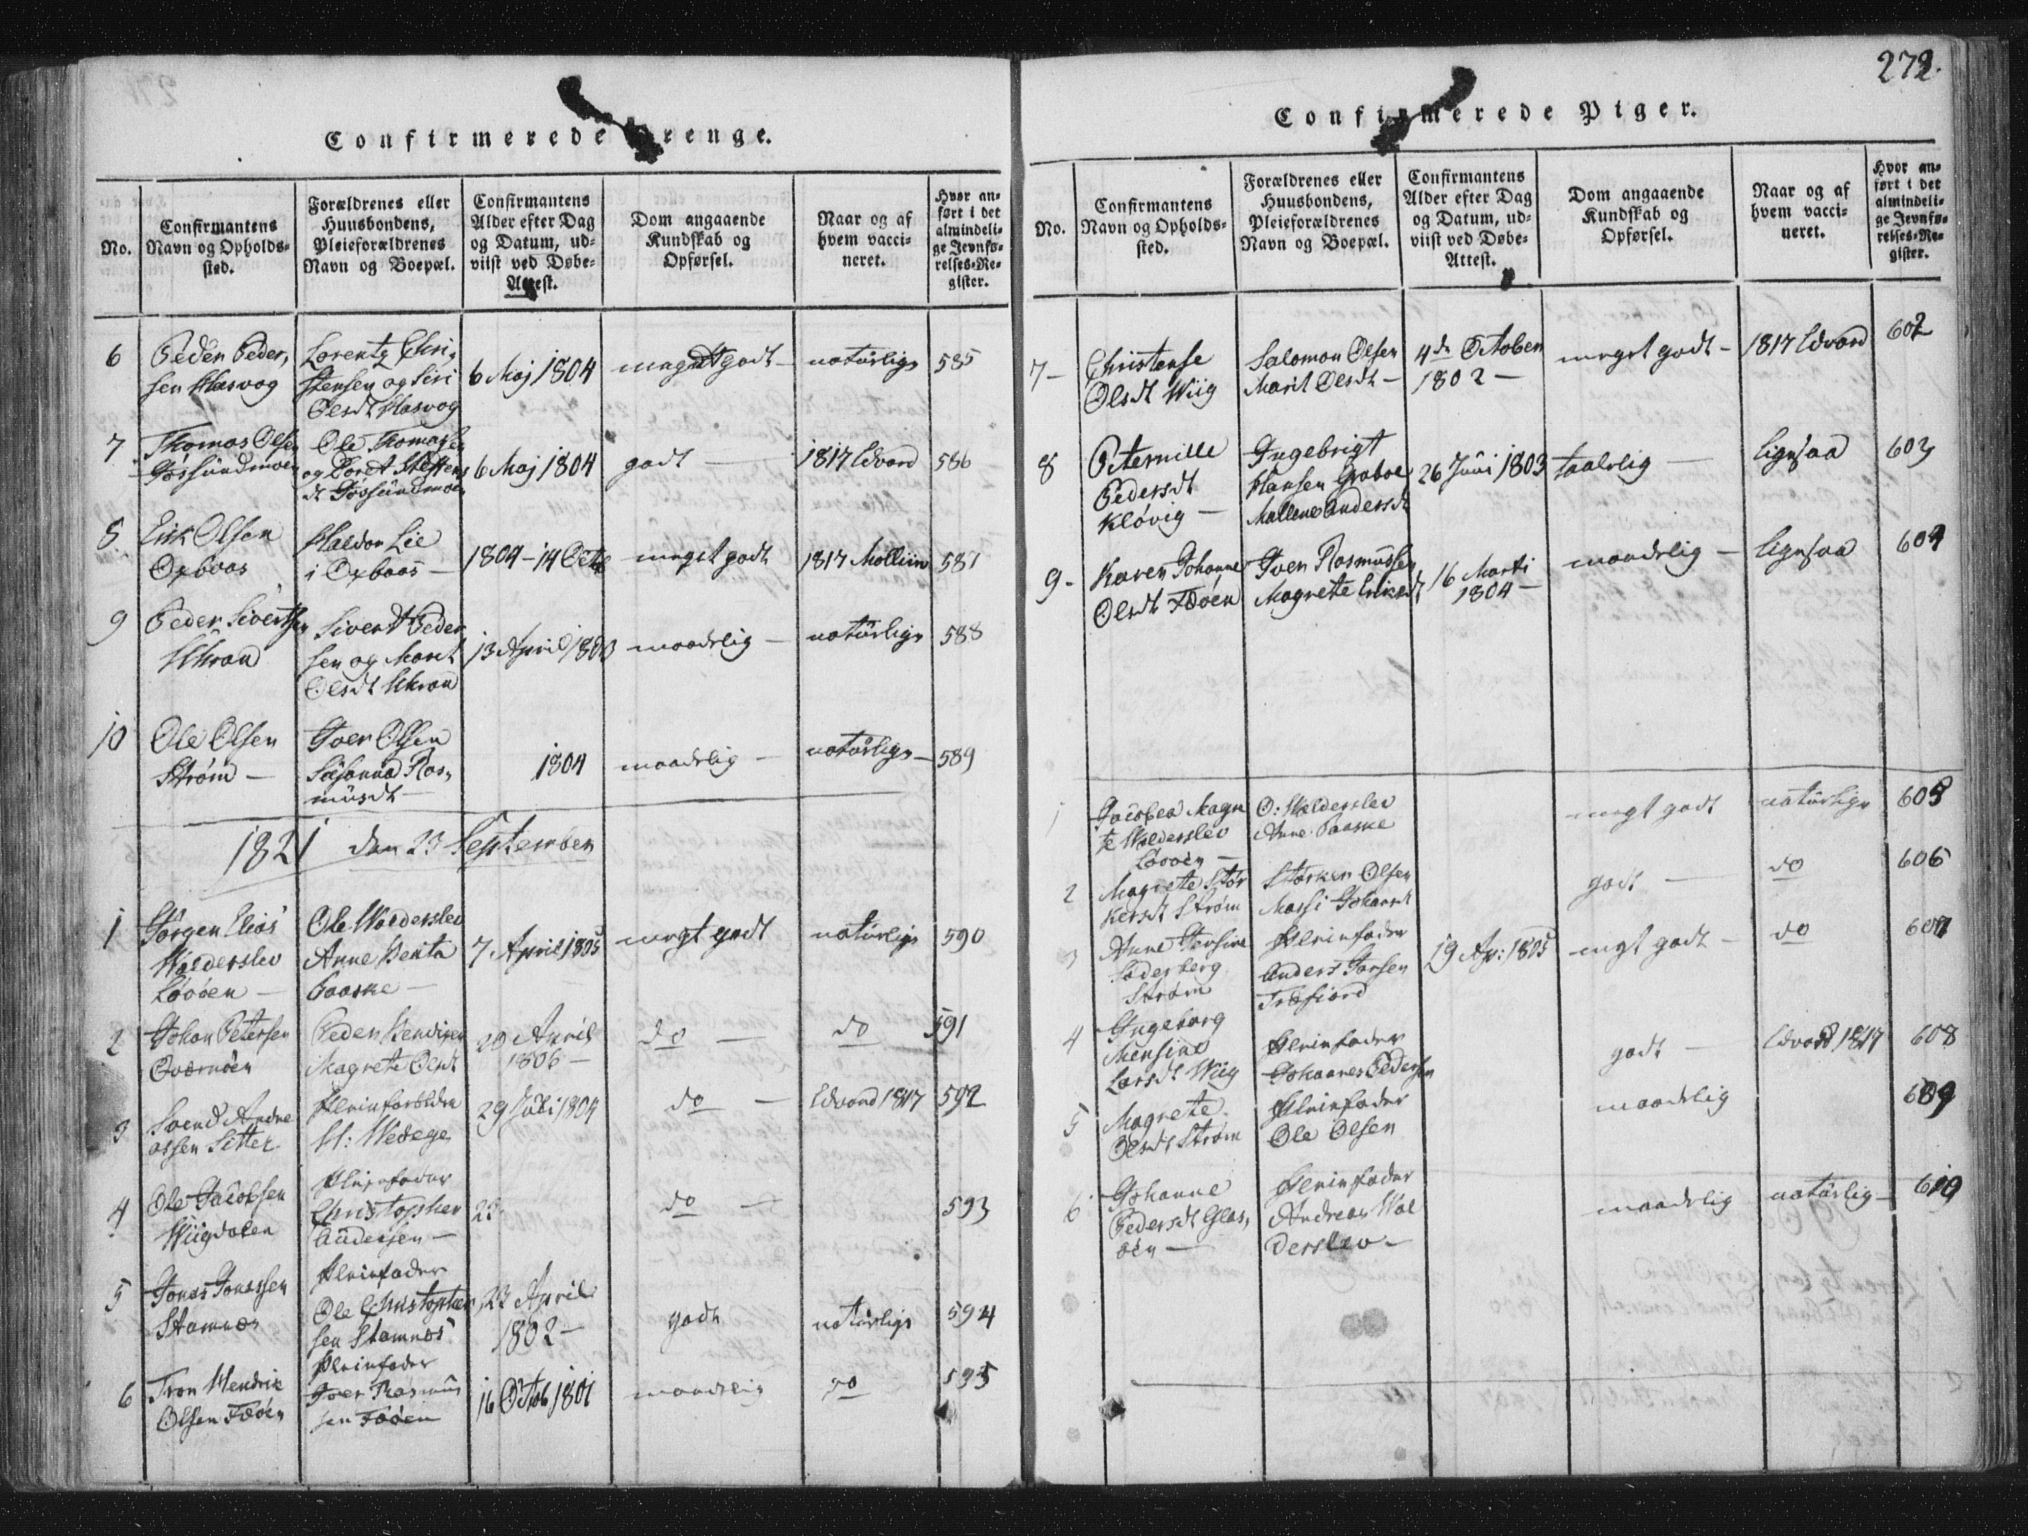 Confirmerede Drenge.
No.
Confirmantens
Navn og Opholds-
sted.
Forældrenes eller
Huusbondens,
Pleieforældrenes
Navn og Boepæl.
Confirmantens
Alder efter Dag
og Datum, ud-
viist ved Døbe-
Attest.
Dom angaaende
Kundskab og
Opførsel.
Naar og af
hvem vacci-
neret.
Hvor an-
ført i det
almindeli-
ge Jevnfø-
relses-Re-
gister.
6
Peder Peder,
sen Hasvog
Lorentz Chri,
stensen og Siri
Olsdt Hasvog
6 Maj 1804
meget godt
natürlige
585
7
Thomas Olsen
Gossundmoen
Ole Thomassen
og Loret Steffens
dt Gossundmoen
6 Maj 1804
godt
1817 Edvard
586
8
Erik Olsen
Oxbaas
Haldor Lie
i Oxbaas
1804 - 14 Octb
meget godt
1817 Mollün
587
9
Peder Sivertsen
Uhran
Sivert Peder
sen og Marit
Olsdt Uhran
13 April 1803
maadelig
natürlige
588
10
Ole Olsen
Strøm
Iver Olsen
Susanna Ras,
müsdt
1804
maadelig
natürlige
589
1821 den 23 September
1
Jørgen Elias
Wolderslev
Løvøen
Ole Wolderslev
Anne Benta
Paaske
7 April 1805
megt godt
natürlige
590
2
Johan Petersen
Qværnøen
Peder Hendriksen
Magrete Olsdt
29 April
1806
do
do
591
3
Svend Andre
assen Sitter
Pleieforældre
H: Wedege
29 Juli 1804
do
Edvard 1817
592
4
Ole Jacobsen
Wiigdalen
Pleiefader
Christopher
Andersen
22
do
593
5
Jonas Jonassen
Stamnæs
Pleiefader
Ole Christopher
sen Stamnes
22 April
1802
godt
natürlige
594
6
Tron Hendrik
Olsen Fæøen
Pleiefader
Iver Rasmüs
sen Fæøen
16 Octob 1801
maadelig
do
595
272.
Confirmerede Piger.
No.
Confirmantens
Navn og Opholds-
sted.
Forældrenes eller
Huusbondens,
Pleieforældrenes
Navn og Boepæl.
Confirmantens
Alder efter Dag
og Datum, ud-
viist ved Døbe-
Attest.
Dom angaaende
Kundskab og
Opførsel.
Naar og af
hvem vacci-
neret.
Hvor an-
ført i det
almindeli-
ge Jevnfø-
relses-Re-
gister.
7
Christense
Olsdt Wiig
Salomon Olsen
Marit Olsdt
4de October
1802
meget godt
1817 Edvard
602
8
Peternille
Pedersdt
Kløvig
Ingebrigt
Hansen Graboe
Mallene Andersdt
26 Juni 1803
taalelig
ligesaa
603
9
Karen Johanne
Olsdt Fæøen
Iver Rasmussen
Magrete Eriksdt
16 Marti
1804
maadelig
ligesaa
604
1
Jacobea Magre
te Wolderslev
Løvøen
O: Wolderslev
Anne Paaske
megt godt
natürlige
605
2
Magrete Stør
kersdt Strøm
Størker Olsen
Massi Johansdt
godt
do
606
3
Anne Jersine
Søderberg
Strøm
Pleiefader
Anders Jonsen
Træfiord
19 Ap: 1805
megt godt
do
607
4
Ingeborg
Mensine
Larsdt Wiig
Pleiefader
Johannes Pedersen
godt
Edvard 1817
608
5
Magrete
Olsdt Strøm
Pleiefader
Ole Olsen
maadelig
609
6
Johanne
Pedersdt Glas,
øen
Pleiefader
Andreas Wol
derslev
maadelig
natürlig
610